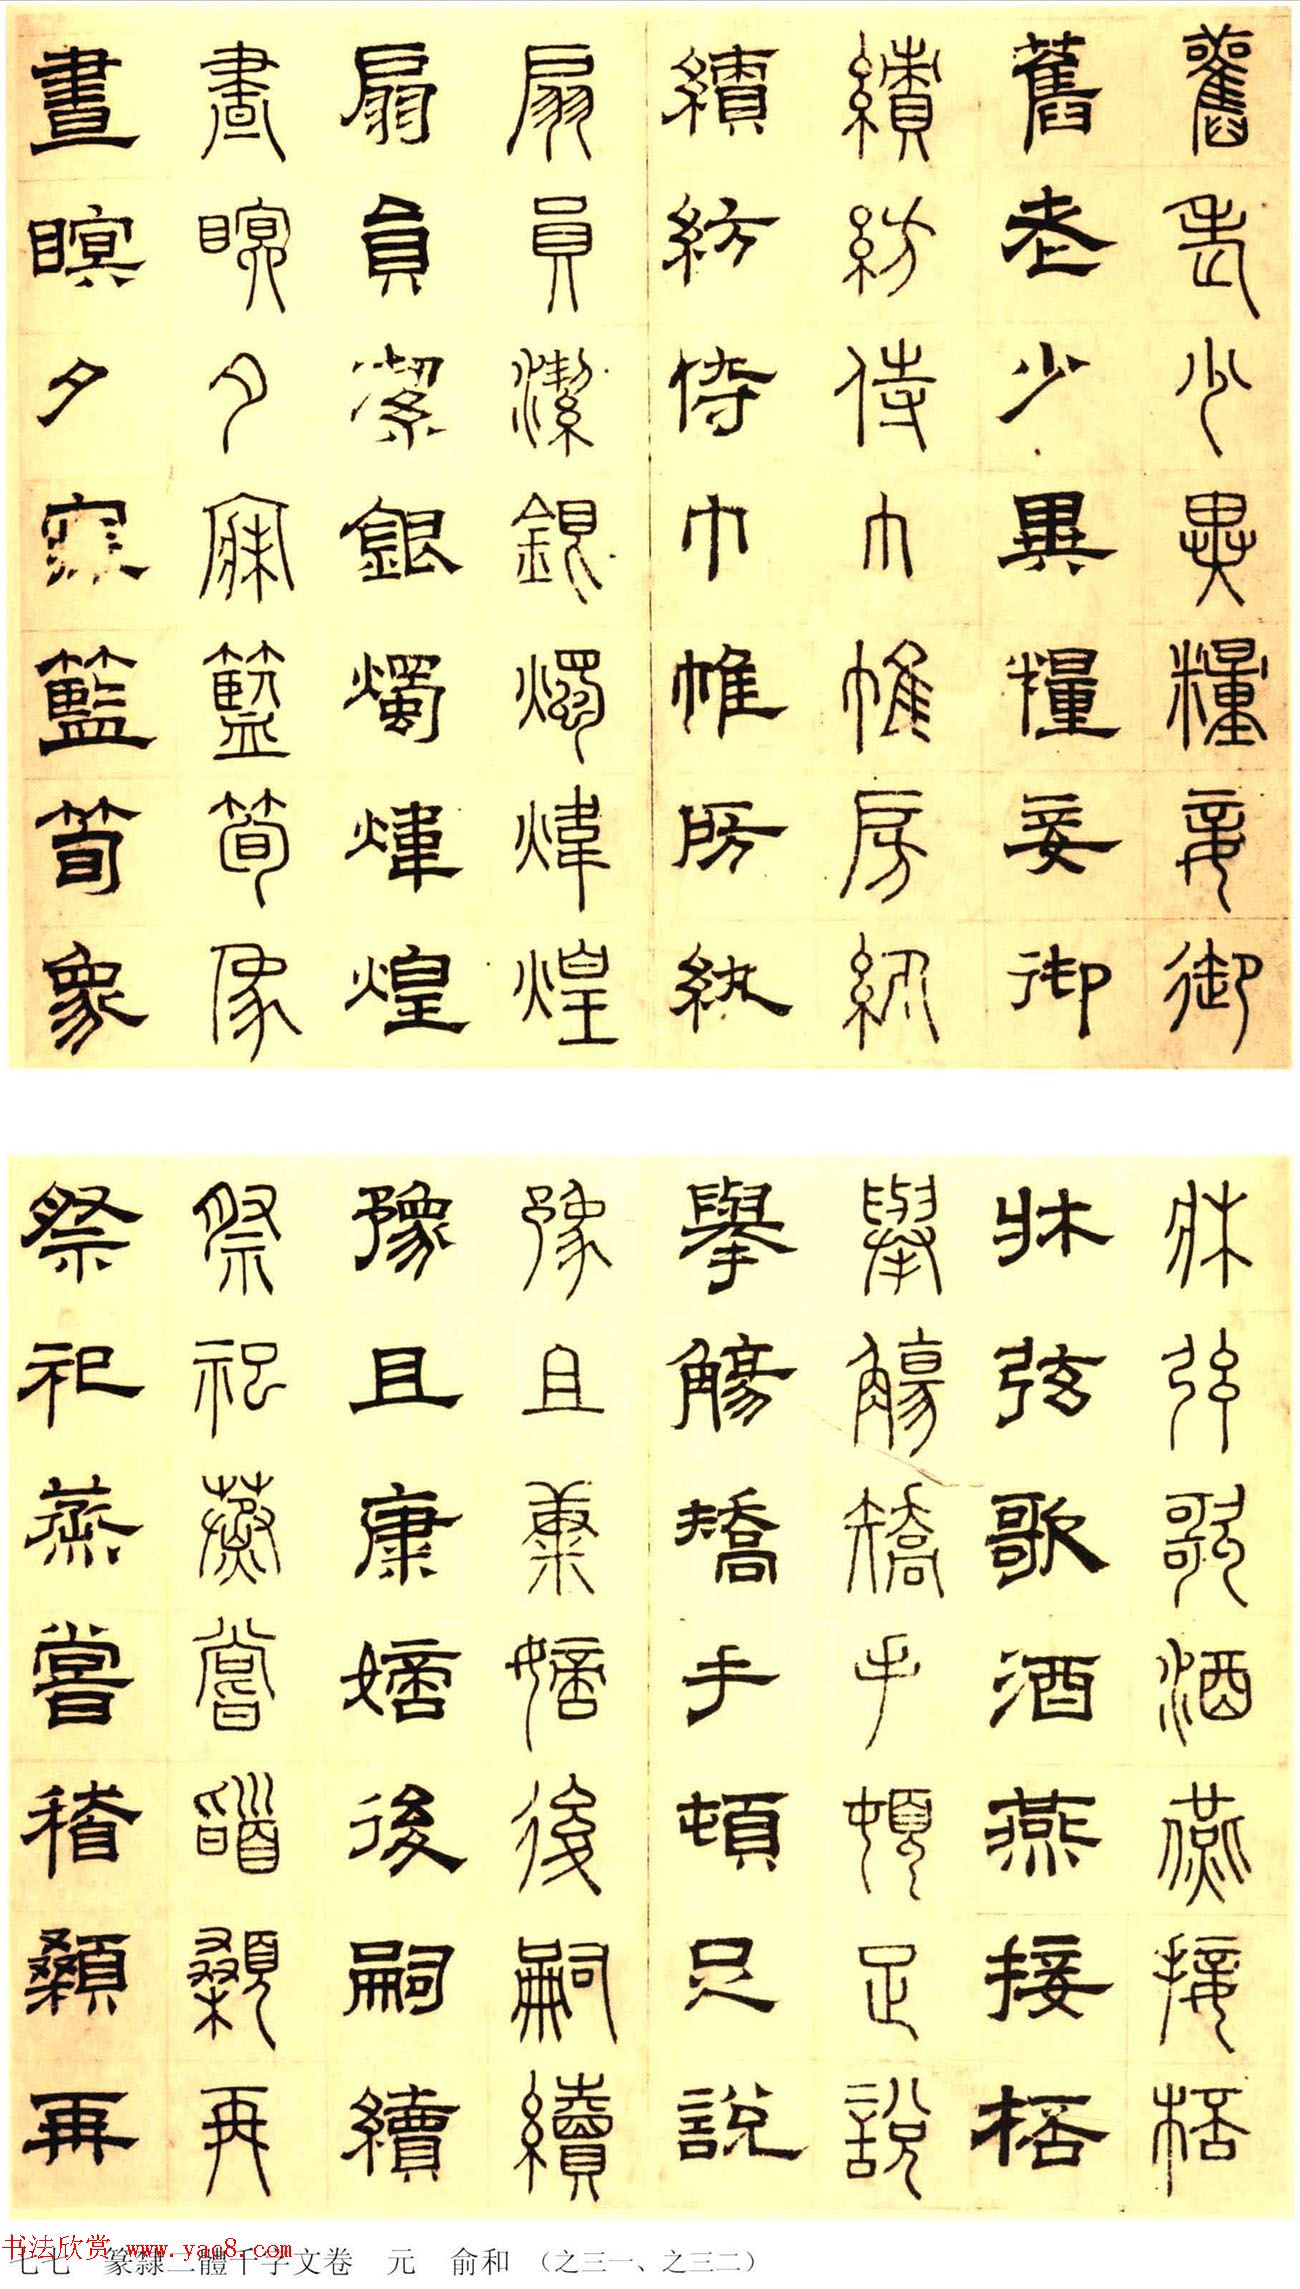 舊老少異糧妾御
舊老少異糧妾御
績紡侍巾帷房紈
績紡侍巾帷房紈
扇員潔銀燭煒煌
扇員潔銀燭煒煌
晝瞑夕寐籃筍象
晝瞑夕寐籃筍象
牀弦歌酒燕接桮
牀弦歌酒燕接桮
舉觴矯手頓足說
舉觴矯手頓足說
豫且康嫡後嗣續
豫且康嫡後嗣續
祭祀蒸嘗稽顙再
祭祀蒸嘗稽顙再
七七 篆隸二體千字文卷 元 俞和 （之三一、之三二）
书法欣赏 www.yac8.com